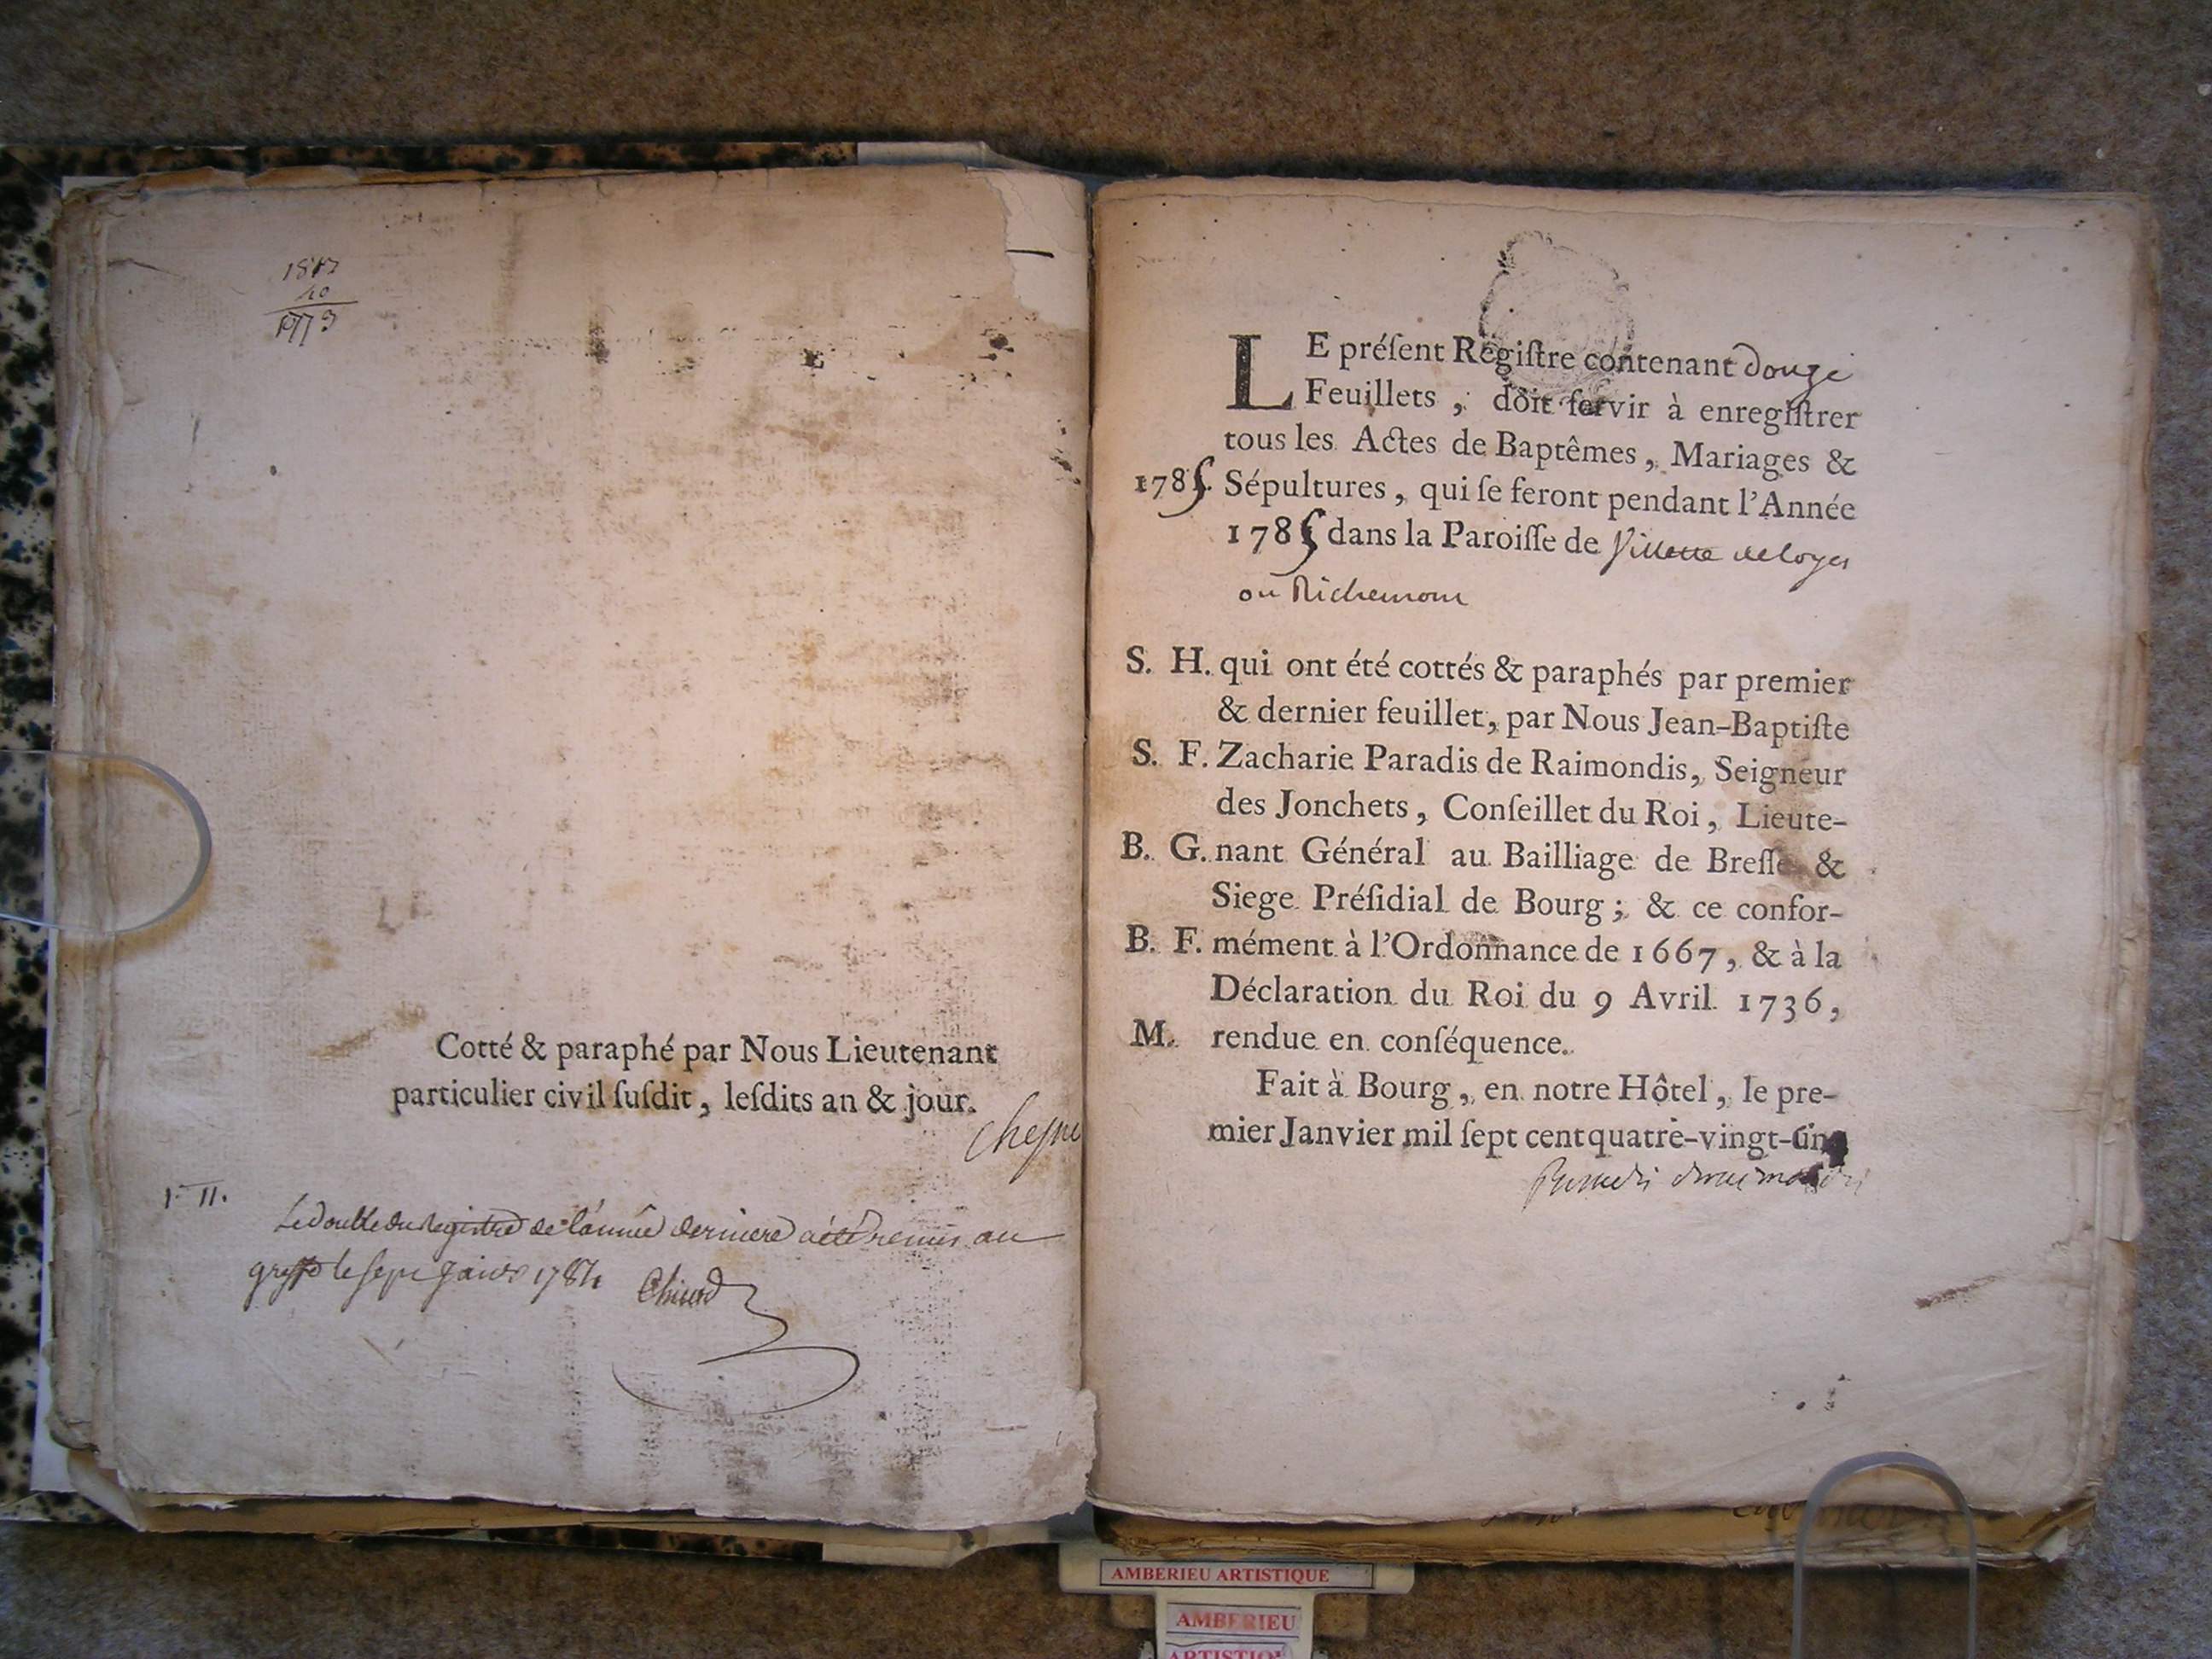 40
Cotté & paraphé par Nous Lieutenant
particulier civil ſuſdit, leſdits an & jour.
Le double du Registre de l'année derniere a été remis au
greffe le sept Janvr 1784
LE préſent Regiſtre contenant douze
Feuillets, doit ſervir à enregiſtrer
tous les Actes de Baptêmes, Mariages &
1785. Sépultures, qui ſe feront pendant l'Année
1785 dans la Paroiſſe de Villette de loyes
ou Richemont
S. H. qui ont été cottés & paraphés par premier
& dernier feuillet, par Nous Jean-Baptiſte
S. F. Zacharie Paradis de Raimondis, Seigneur
des Jonchets, Conſeillet du Roi, Lieute-
B. G. nant Général au Bailliage de Breſſe &
Siege Préſidial de Bourg; & ce confor-
B. F. mément à l'Ordonnance de 1667, & à la
Déclaration du Roi du 9 Avril 1736,
M. rendue en conſéquence.
Fait à Bourg, en notre Hôtel, le pre-
mier Janvier mil ſept cent quatre-vingt-cinq
AMBERIEU ARTISTIQUE
AMBERIEU
ARTISTIQUE